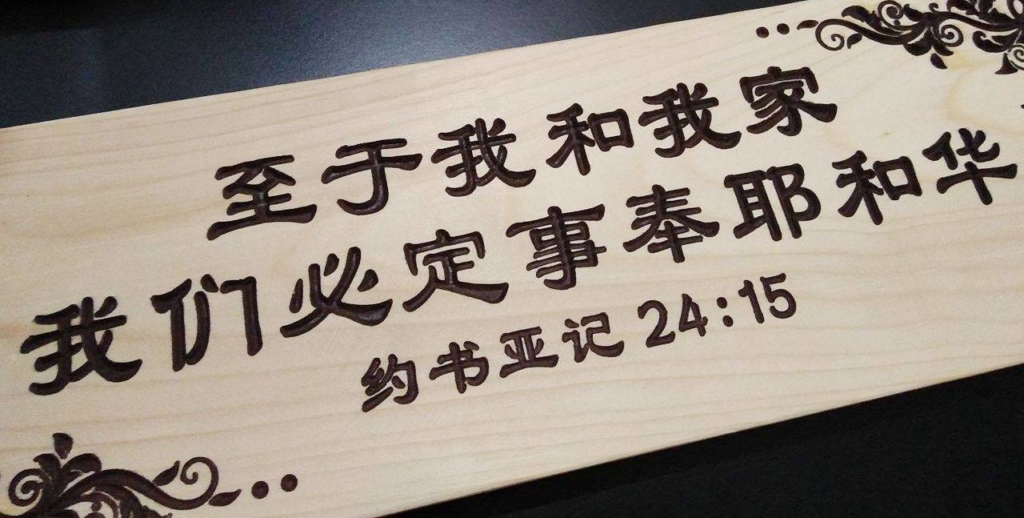 至于我和我家
我们必定事奉耶和华
约书亚记 24:15